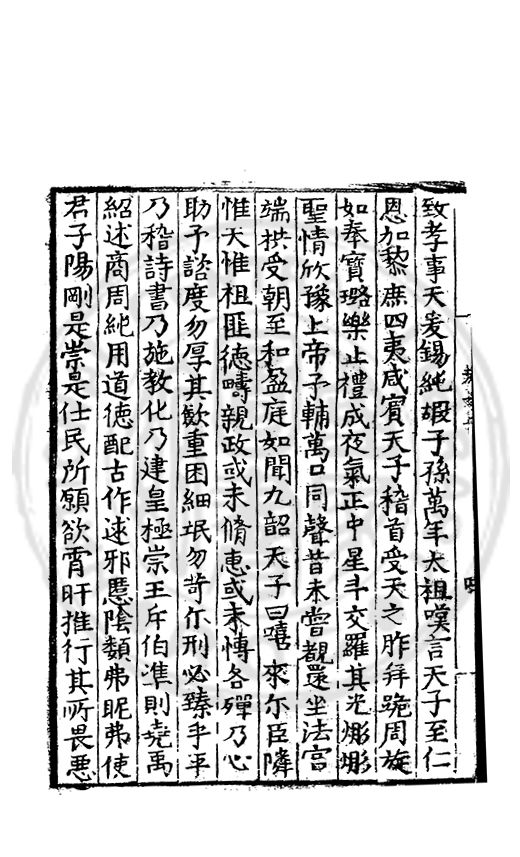 致孝事天爰錫純嘏子孫萬年太祖嘆言天子至仁
恩加黎庶四夷咸賓天子稽首受天之胙拜跪周旋
如奉寶璐樂止禮成夜氣正中星斗交羅其光彤彤
聖情欣豫上帝予輔萬口同聲昔未嘗覩還坐法宮
端拱受朝至和盈庭如聞九韶天子曰嘻來尓臣隣
惟天惟祖匪德疇親政或未脩惠或未慱各殫乃心
助予諮度勿厚其歛重困細氓勿苛仄刑必臻乎平
乃稽詩書乃施教化乃建皇極崇王斥伯準則堯禹
紹述商周純用道德配古作逑邪慝陰類弗昵弗使
君子陽剛是崇是仕民所願欲宵旰推行其所畏惡